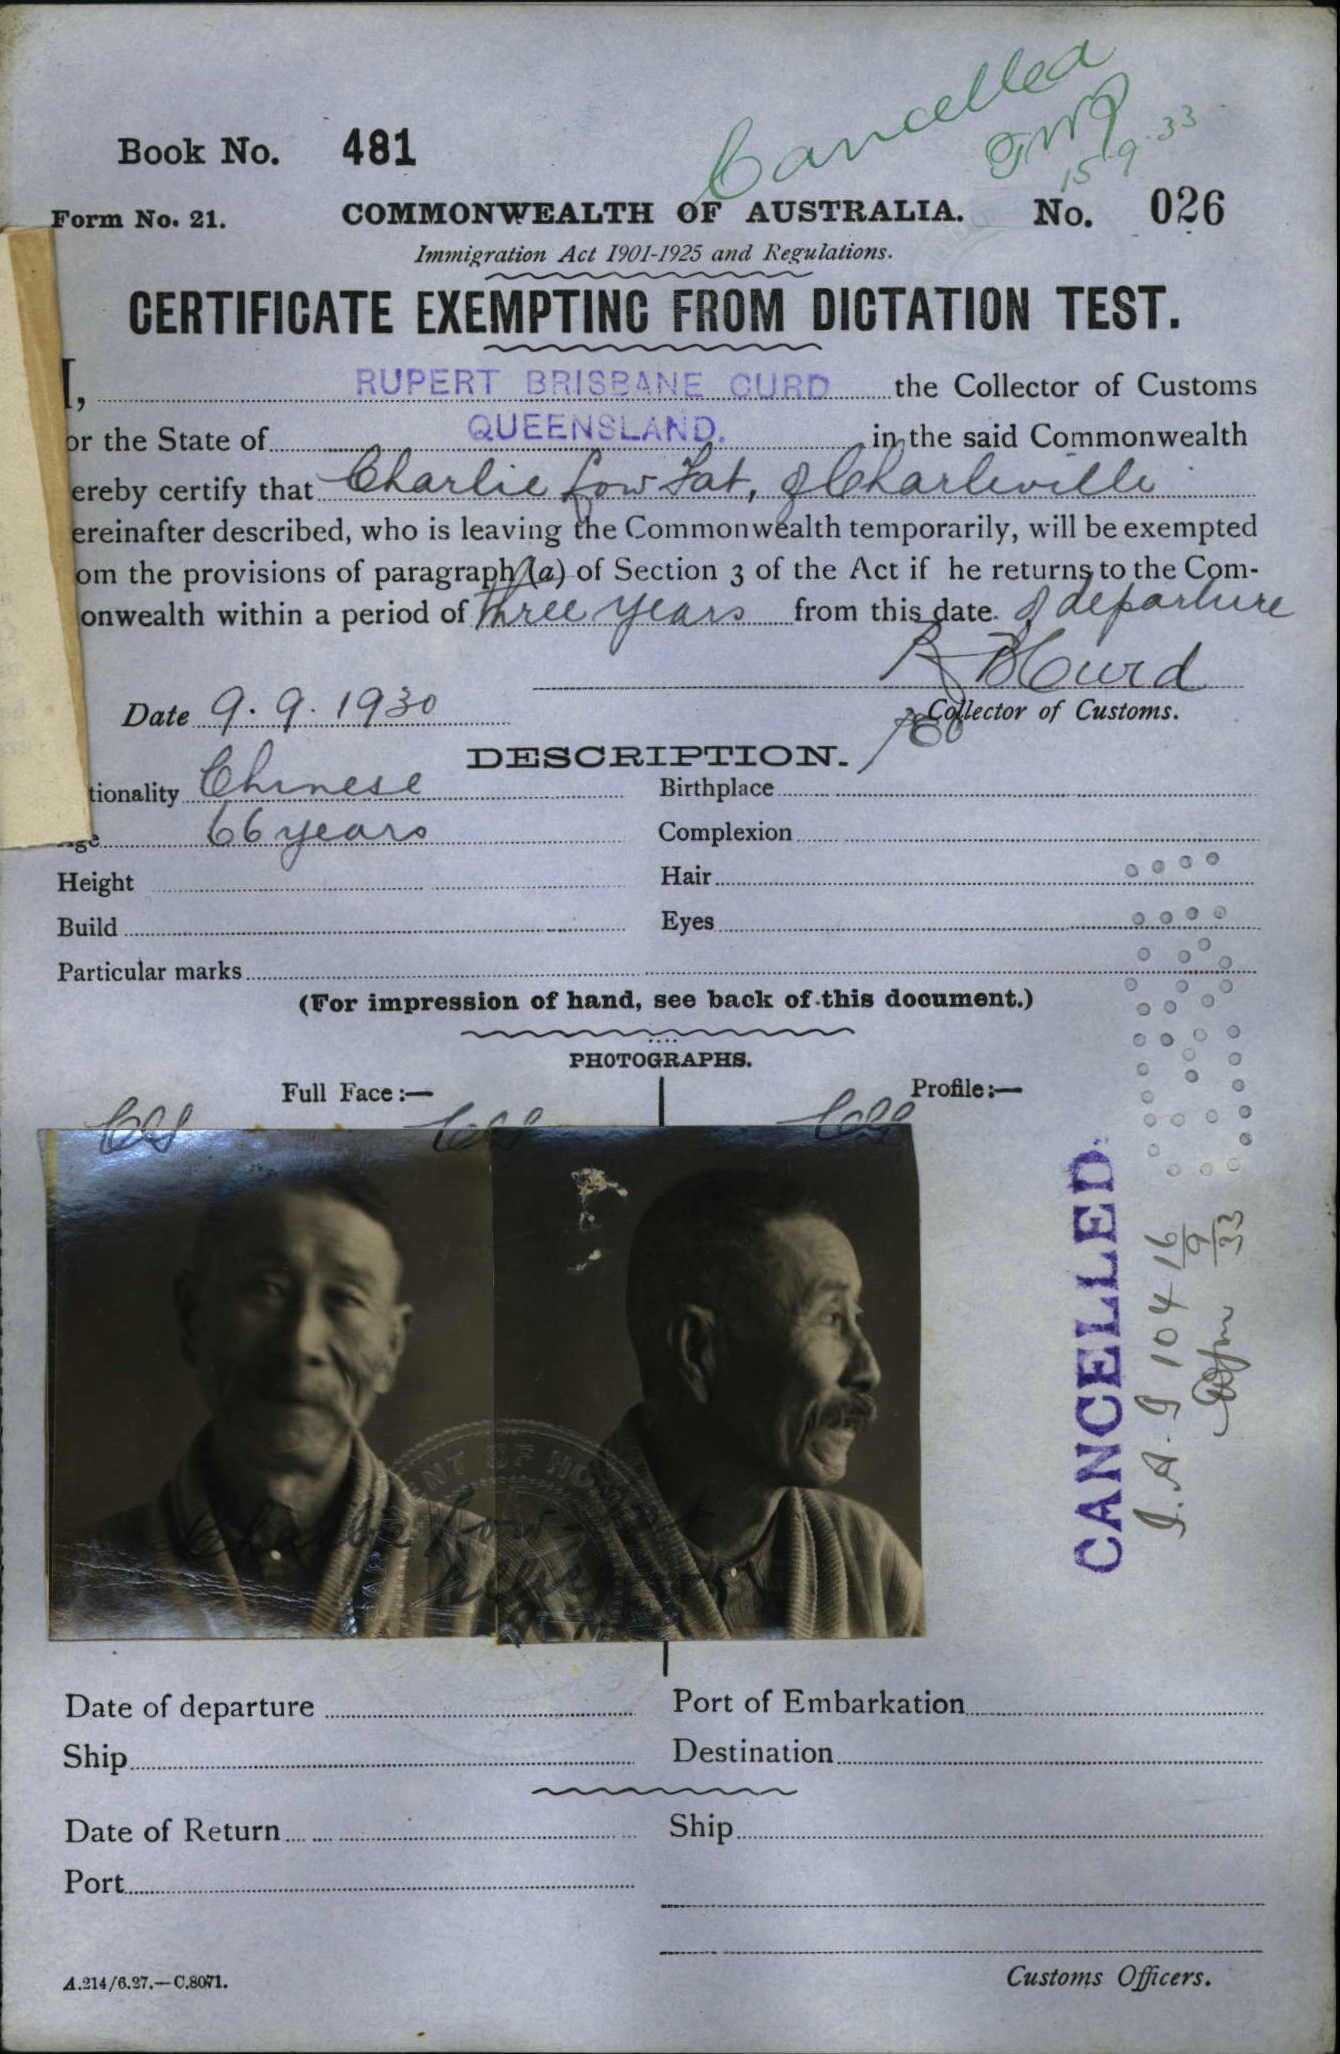 Cancelled
15.9.33
Book No. 481
Form No. 21. COMMONWEALTH OF AUSTRALIA. No. 026
Immigration Act 1901-1925 and Regulations.
CERTIFICATE EXEMPTING FROM DICTATION TEST.
I, RUPERT BRISBANE CURD the Collector of Customs
or the State of QUEENSLAND. in the said Commonwealth
ereby certify that Charlie Low Fat, of Charleville
ereinafter described, who is leaving the Commonwealth temporarily, will be exempted
om the provisions of paragraph (a) of Section 3 of the Act if he returns to the Com-
onwealth within a period of three years from this date of departure
R B Curd
Date 9.9.1930 Collector of Customs.
DESCRIPTION.
tionality Chinese Birthplace
Age 66 years Complexion
Height Hair
Build Eyes
Particular marks
(For impression of hand, see back of this document.)
PHOTOGRAPHS.
Full Face:— Profile:—
CANCELLED
16/9/33
Charlie Low
Date of departure Port of Embarkation
Ship Destination
Date of Return Ship
Port
A.214/6.27.—C.8071. Customs Officers.